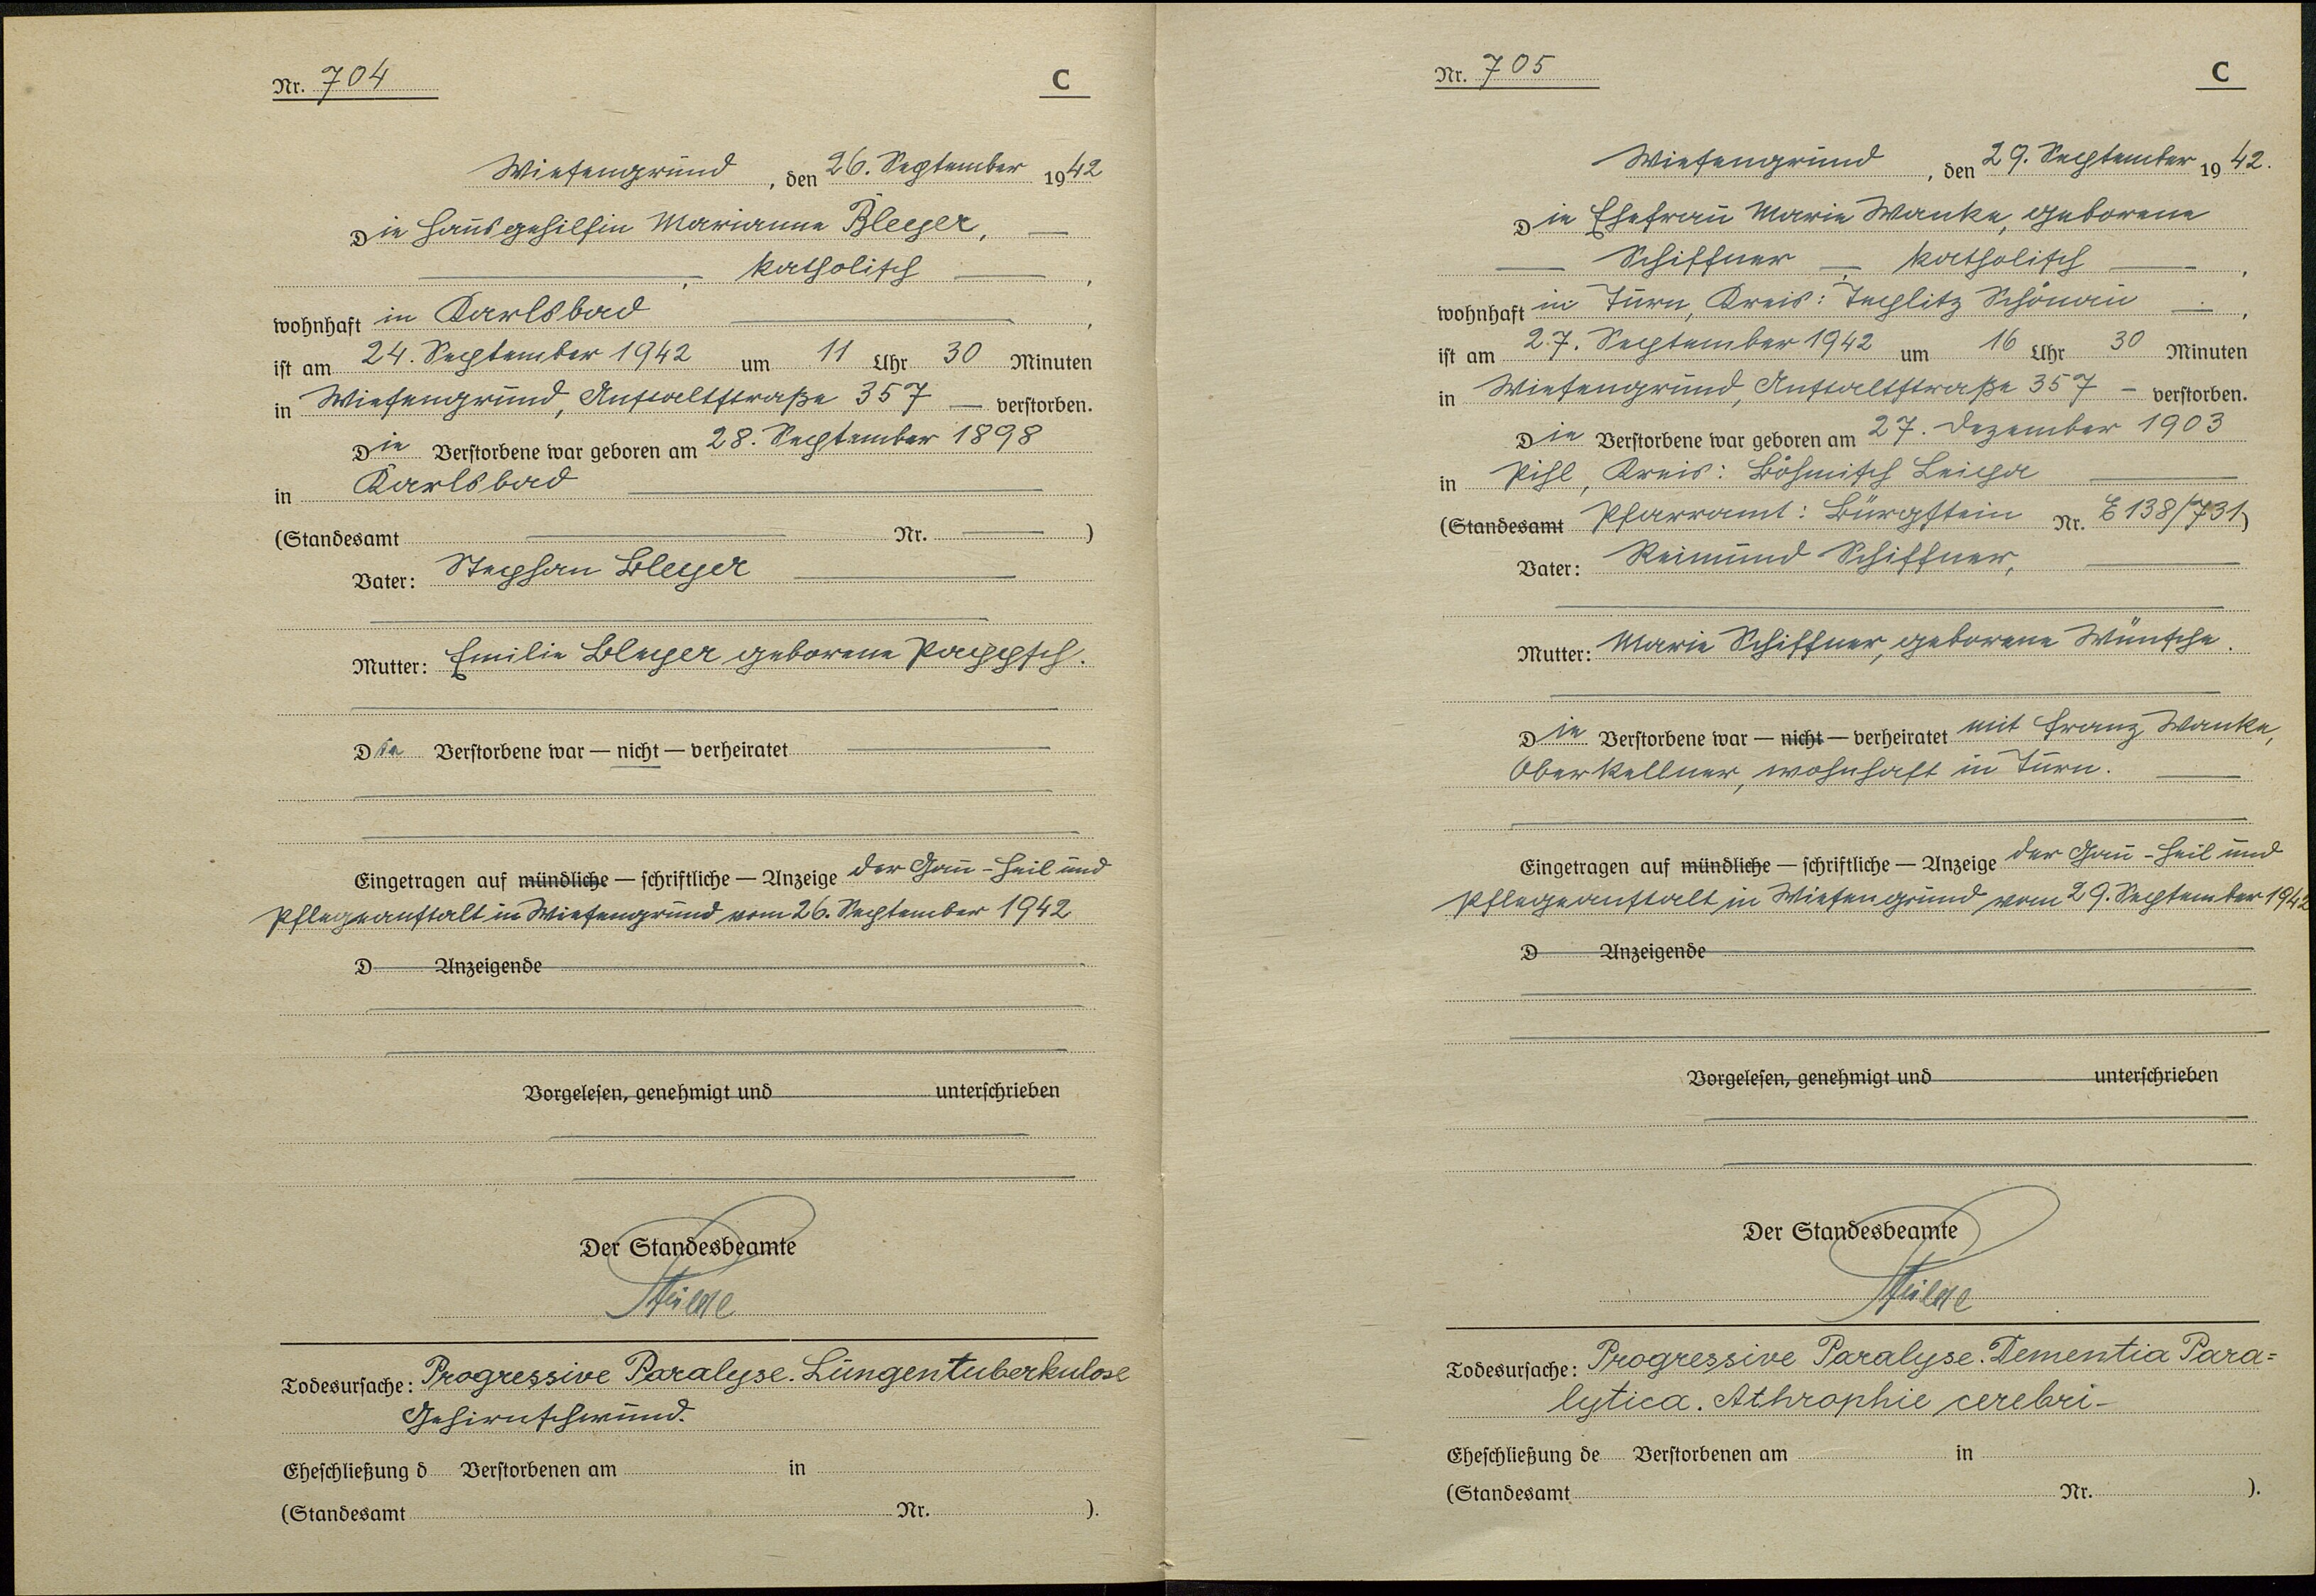 Nr. 704
C
Wiesengrund, den 26. September 1942
Die Hausgehilfin Marianne Bleyer, —
—, katholisch —,
wohnhaft in Karlsbad —,
ist am 24. September 1942 um 11 Uhr 30 Minuten
in Wiesengrund, Anstaltstraße 357 — verstorben.
Die Verstorbene war geboren am 28. September 1898
in Karlsbad —
(Standesamt — Nr. —)
Vater: Stephan Bleyer —
Mutter: Emilie Bleyer geborene
Die Verstorbene war — nicht — verheiratet —
Eingetragen auf mündliche — schriftliche — Anzeige der Gau-Heil und
Pflegeanstalt in Wiesengrund vom 26. September 1942
D Anzeigende
Vorgelesen, genehmigt und unterschrieben
Der Standesbeamte
Todesursache: Progressive Paralyse. Lungentuberkulose
Gehirnschwund.
Eheschließung d Verstorbenen am in
(Standesamt Nr. ).
Nr. 705
C
Wiesengrund, den 29. September 1942.
Die Ehefrau Marie Wanke, geborene
— Schiffner —, katholisch —,
wohnhaft in Turn, Kreis: Teplitz Schönau —,
ist am 27. September 1942 um 16 Uhr 30 Minuten
in Wiesengrund, Anstaltstraße 357 — verstorben.
Die Verstorbene war geboren am 27. Dezember 1903
in Pihl, Kreis: Böhmisch Leipa —
(Standesamt Pfarramt: Bürgstein Nr. E 138/731)
Vater: Reimund Schiffner, —
Mutter: Marie Schiffner, geborene Wünsche.
Die Verstorbene war — nicht — verheiratet mit Franz Wanke,
Oberkellner, wohnhaft in Turn. —
Eingetragen auf mündliche — schriftliche — Anzeige der Gau-Heil und
Pflegeanstalt in Wiesengrund vom 29. September 1942
D Anzeigende
Vorgelesen, genehmigt und unterschrieben
Der Standesbeamte
Todesursache: Progressive Paralyse. Dementia Para=
lytica. Athrophie cerebri-
Eheschließung de Verstorbenen am in
(Standesamt Nr. ).